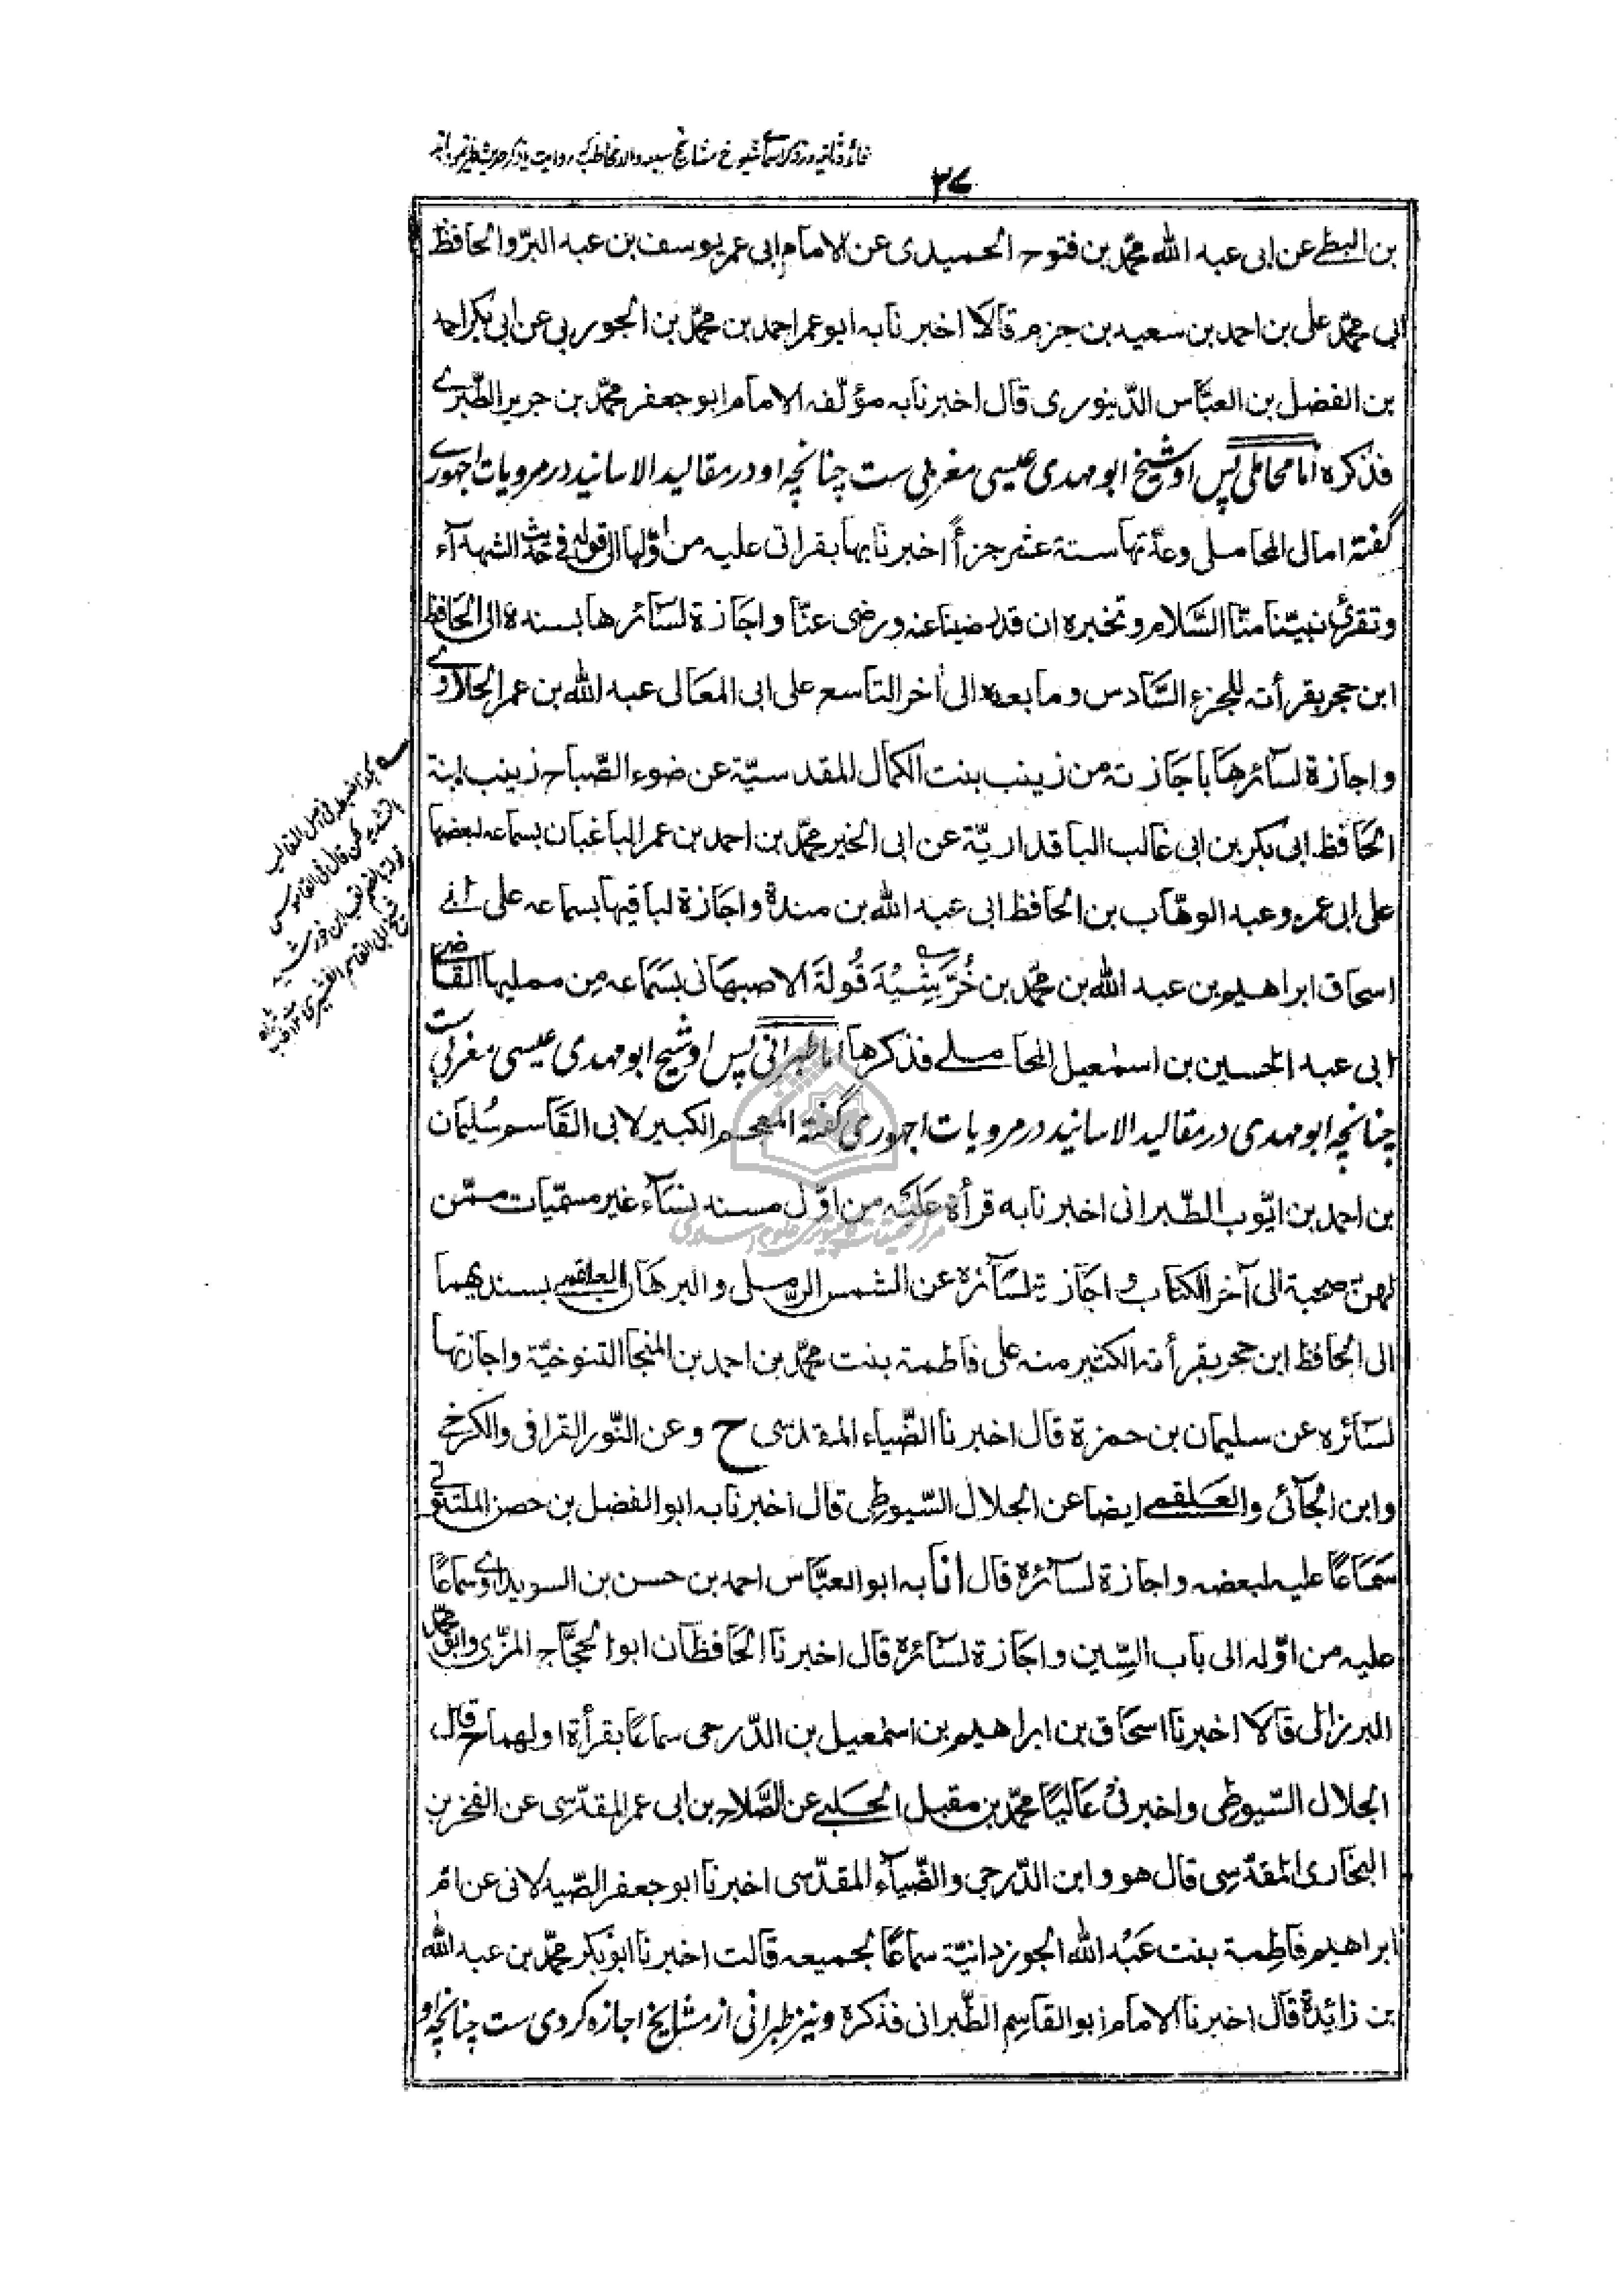 ۳۷
بن البطی عن ابی عبد الله محمّد بن فتوح الحمیدی عن الامام ابی عمر یوسف بن عبد البرّ والحافظ
ابی محمّد علی بن احمد بن سعید بن حزم قالا اخبرنا به ابو عمر احمد بن محمّد بن الجوربی عن ابی بکر احمد
بن الفضل بن العبّاس الدّینوری قال اخبرنا به مؤلّفه الامام ابو جعفر محمّد بن جریر الطّبرے
فذکره امّا محاملی پس او شیخ ابو مهدی عیسی مغربی ست چنانچه او در مقالید الاسانید در مرویات اجهورے
گفته امالی المحاملی وعدّتها ستة عشر جزأً اخبرنا بها بقرائتی علیه من اوّلها الی قوله فی حدیث الشهدآء
وتقرئ نبیّنا منّا السّلام وتخبره ان قد رضینا عنه ورضی عنّا واجازة لسآئرها بسنده الی الحافظ
ابن حجر بقرأته للجزء السّادس وما بعده الی اٰخر التاسع علی ابی المعالی عبد الله بن عمر الحلاوے
واجازة لسآئرها باجازته من زینب بنت الکمال المقدسیّة عن ضوء الصّباح زینب ابنة
الحافظ ابی بکر بن ابی غالب الباقداریّة عن ابی الخیر محمّد بن احمد بن عمر الباغبان بسماعه لبعضها
علی ابی عمرو عبد الوهّاب بن الحافظ ابی عبد الله بن مندة واجازة لباقیها بسماعه علی ابے
اسحاق ابراهیم بن عبد الله بن محمّد بن خُرَّشِیْدَ قُولَة الاصبهانی بسَمَاعه مِن مملیها القاضے
ابی عبد الحسین بن اسمٰعیل المحاملے فذکرها امّا طبرانی پس او شیخ ابو مهدی عیسی مغربی ست
چنانچه ابو مهدی در مقالید الاسانید در مرویات اجهوری گفته المعجم الکبیر لابی القاسم سُلیمان
بن احمد بن ایّوب الطّبرانی اخبرنا به قرأة عَلَیْه من اوّل مسند نسآء غیر مسمّیات ممّن
لهنّ صحبة الی آخر الکتاب واجازة لسآئره عن الشمس الرّملی والبرهان العلقمے بسندیهما
الی الحافظ ابن حجر بقرأته الکثیر منه علی فاطمة بنت محمّد بن احمد بن المنجا التنوخیّة واجازتها
لسآئره عن سلیمان بن حمزة قال اخبرنا الضّیاء المقدسی ح وعن النّور القرافی والکرخے
وابن الجآئی والعلقمے ایضا عن الجلال السّیوطی قال اخبرنا به ابو الفضل بن حصن الملتقوتے
سَمَاعًا علیه لبعضه واجازة لسآئره قال انا به ابو العبّاس احمد بن حسن بن السویداوے سماعًا
علیه من اوّله الی باب السّین واجازة لسآئره قال اخبرنا الحافظان ابو الحجّاج المزّی وابو محمّد
البرزالی قالا اخبرنا اسحاق بن ابراهیم بن اسمٰعیل بن الدّرجی سماعًا بقرأة اولهما ح قال
الجلال السّیوطی واخبرنی عَالیًا محمّد بن مقبل الحلبے عن الصّلاح بن ابی عمر المقدّسی عن الفخر بن
البخاری المقدّسی قال هو وابن الدّرجی والضّیآء المقدّسی اخبرنا ابو جعفر الصّیدلانی عن امّ
ابراهیم فاطمة بنت عَبْد الله الجوزدانیّة سماعًا لجمیعه قالت اخبرنا ابو بکر محمّد بن عبد الله
بن زائدة قال اخبرنا الامام ابو القاسم الطّبرانی فذکره ونیز طبرانی از مشایخ اجازه کردی ست چنانچه او